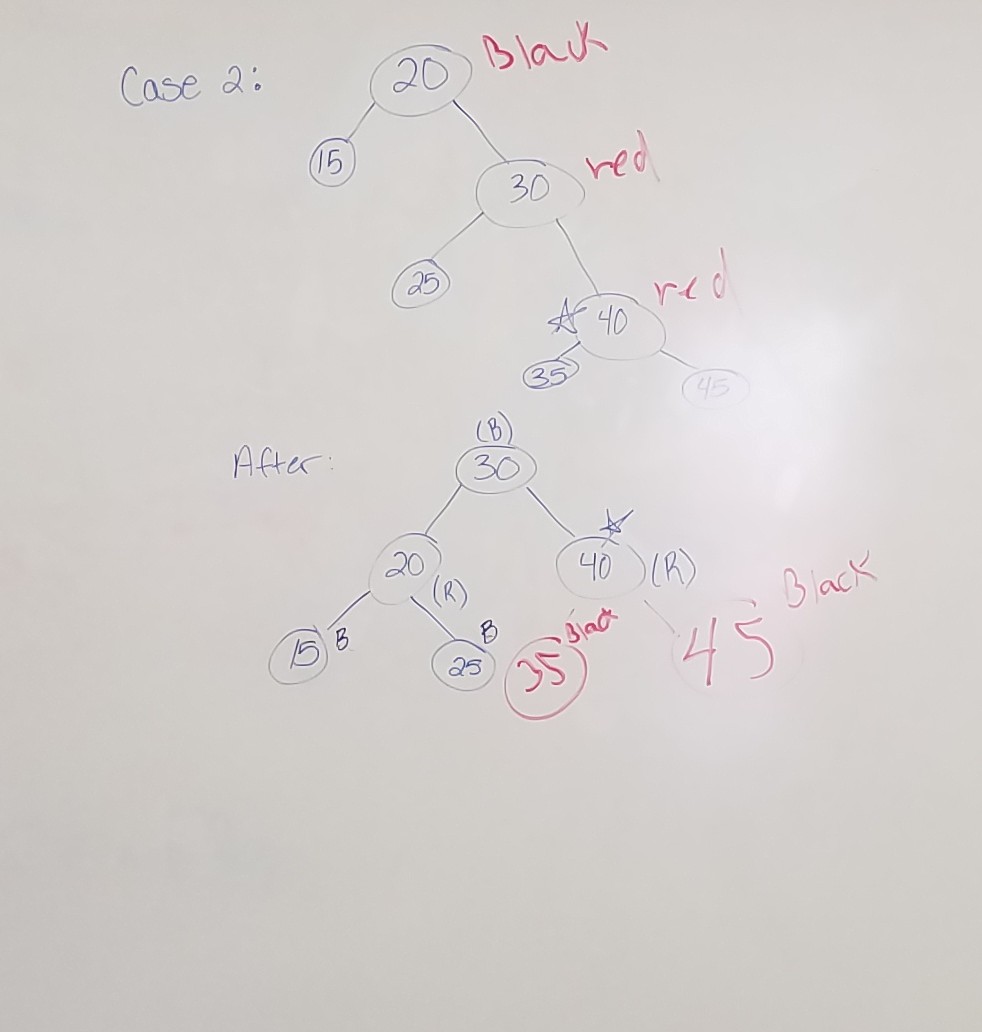 Case 2: 20 Black
15 30 red
25 40 red
35 45
After: (B)
30
20 (R) 40 (R)
15 B 25 B 35 Black 45 Black